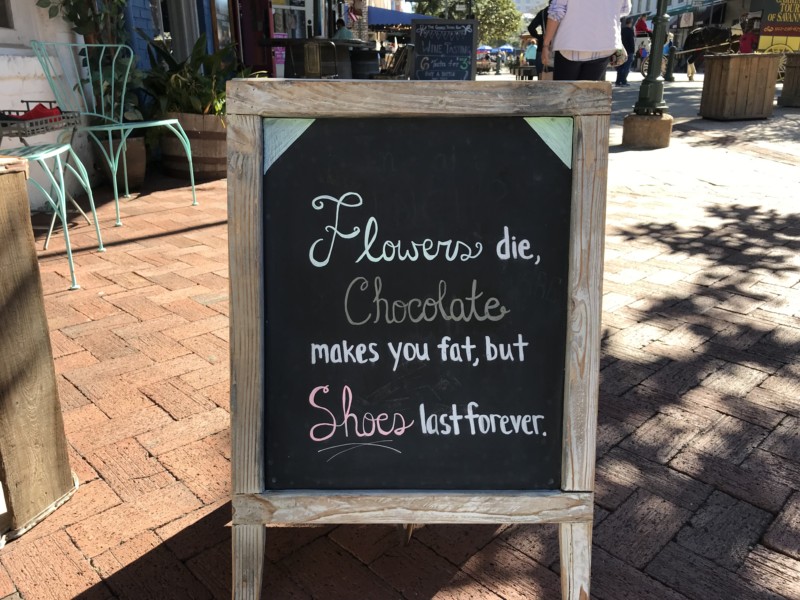 WINE TASTING
Flowers die,
Chocolate
makes you fat, but
Shoes last forever.